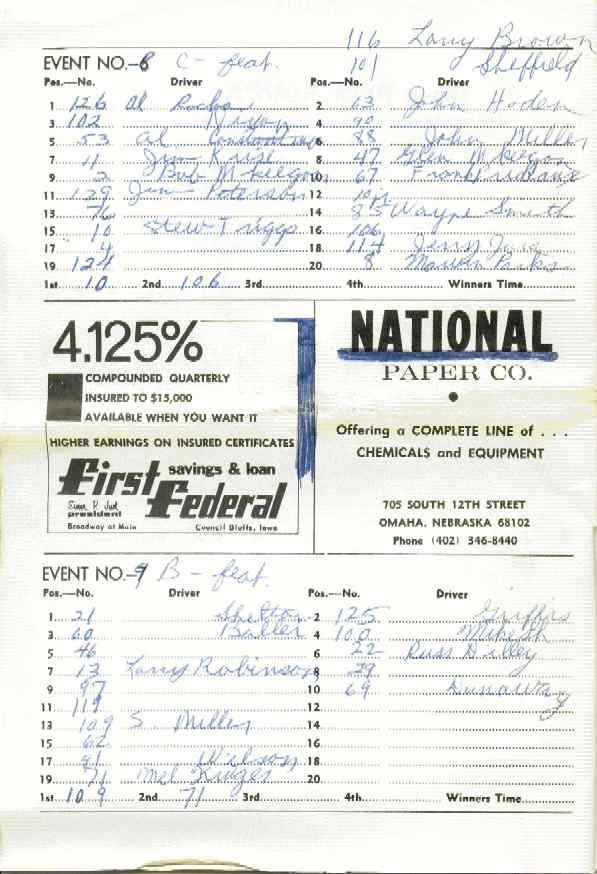 116 Larry Brown
EVENT NO. 8 C - feat. 101 Sheffield
Pos.—No. Driver Pos.—No. Driver
1 126 Al 2 63 John Haden
3 102 Dixon 4 90
5 53 Al Constantino 6 88 John Miller
7 11 Jim Kruse 8 47 Glen McKergon
9 2 Bob McKelgon 10 67 Frank Prudance
11 129 Jim Peterson 12 10jr.
13 76 14 85 Wayne Smith
15 10 Stew Triggs 16 106
17 4 18 114 Jerry
19 124 20 8 Marvin Parks
1st 10 2nd 106 3rd 4th Winners Time
4.125%
COMPOUNDED QUARTERLY
INSURED TO $15,000
AVAILABLE WHEN YOU WANT IT
HIGHER EARNINGS ON INSURED CERTIFICATES
First Federal savings & loan
president
Broadway at Main Council Bluffs, Iowa
NATIONAL
PAPER CO.
Offering a COMPLETE LINE of . . .
CHEMICALS and EQUIPMENT
705 SOUTH 12TH STREET
OMAHA, NEBRASKA 68102
Phone (402) 346-8440
EVENT NO. 9 B - feat.
Pos.—No. Driver Pos.—No. Driver
1 21 Shelton 2 125 Griffis
3 60 Baller 4 100 Mikesh
5 46 6 22 Russ Dilley
7 13 Larry Robinson 8 29
9 97 10 69 Dunaway
11 119 12
13 109 S. Miller 14
15 62 16
17 81 Wilson 18
19 71 Mel Kruger 20
1st 109 2nd 71 3rd 4th Winners Time